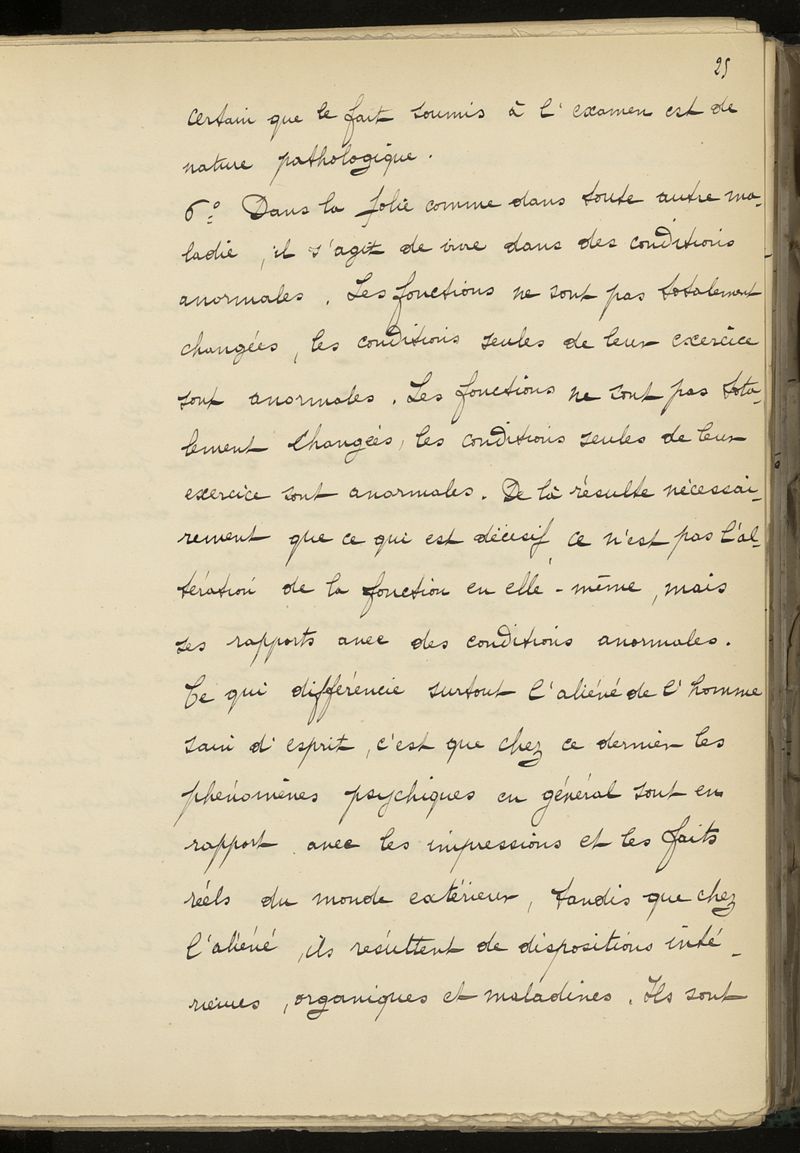 25
certain que le fait soumis à l'examen est de
nature pathologique.
6º Dans la folie comme dans toute autre ma-
ladie, il s'agit de vivre dans des conditions
anormales. Les fonctions ne sont pas totalement
changées, les conditions seules de leur exercice
sont anormales. Les fonctions ne sont pas tota-
lement changées, les conditions seules de leur
exercice sont anormales. De là résulte nécessai-
rement que ce qui est décisif, ce n'est pas l'al-
tération de la fonction en elle-même, mais
ses rapports avec des conditions anormales.
Ce qui différencie surtout l'aliéné de l'homme
sain d'esprit, c'est que chez ce dernier les
phénomènes psychiques en général sont en
rapport avec les impressions et les faits
réels du monde extérieur, tandis que chez
l'aliéné, ils résultent de dispositions inté-
rieures, organiques et maladives. Ils sont